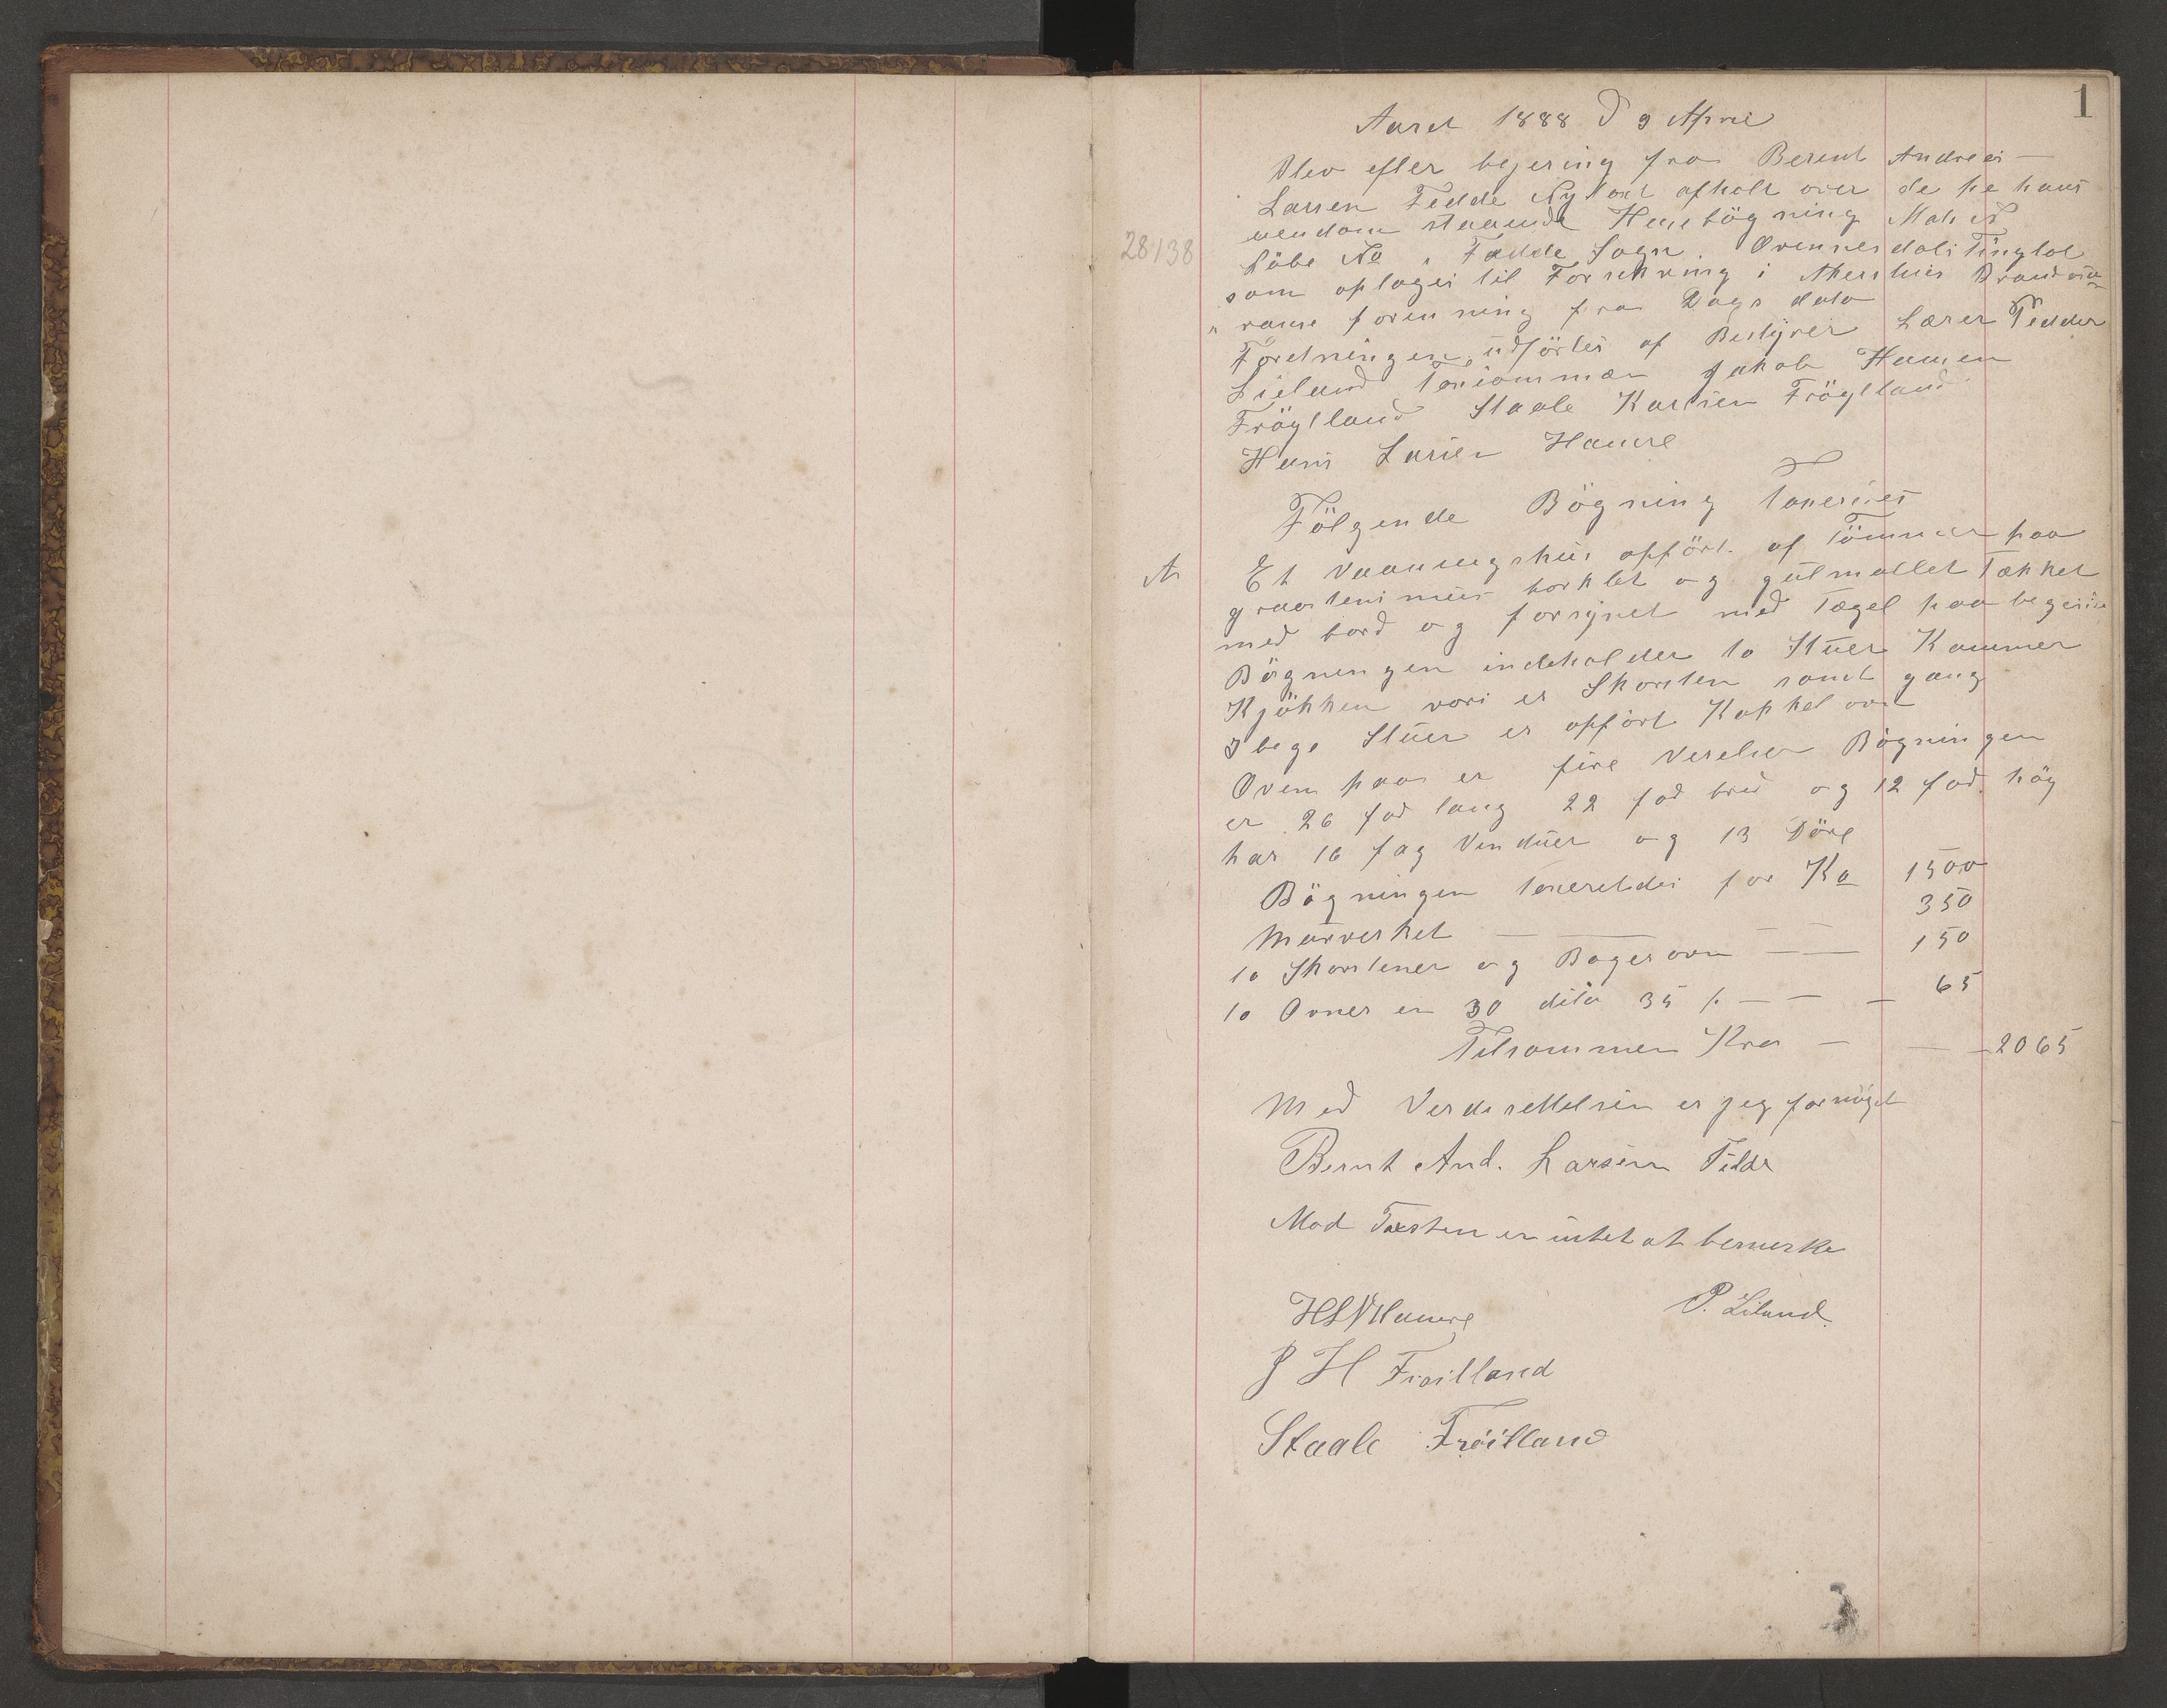 1
Aaret 1888 D 9 April
Blev efter bejering fra Berent Andreas
Larsen Fedde Ny Taxt afholt over de pe hans
eiendom staaende Husebögning Mat N
28/38
Löbe No " Fedde Sogn. Qvinnesdals Tinglag
som optages til Forsekring i Akershus Brandasu
" ranse forenning fra Dags dato
Foretningen udförtes af Bestyrer Lærer Peder
Lieland Taxsommæn Jakob Hansen
Fröylland Staale Karlsen Fröylland
Hans Larsen Hamre
Fölgende Bögning Taxerues
A Et Vaaningshus opfört af Tömmer paa
graastensmur borklet og gulmallet Tækket
med bord og forsynet med Tægel paa begesier
Bögningen indeholder to Stuer Kammer
Kjökken vori er Skorsten samt gang
I bege Stuer er opfört Kakkelovn
Oven paa er fire Verelser Bögningen
er 26 fod lang 22 fod bred og 12 fod höy
har 16 fag Vinduer og 13 Döre
Bögningen taxeredes for Kr 1500
Murverket — — — 350
to Skorstener og Bagerovn — — 150
to Ovner en 30 dito 35 /. — — — 65
Tilsammen Kr — — — 2065
Med Verdisettelsen er jeg fornöyet
Bernt And. Larsen Fedde
Mod Taxten er intet at bemerke
HLN Hamre P. Liland.
J H Fröilland
Staale Fröilland